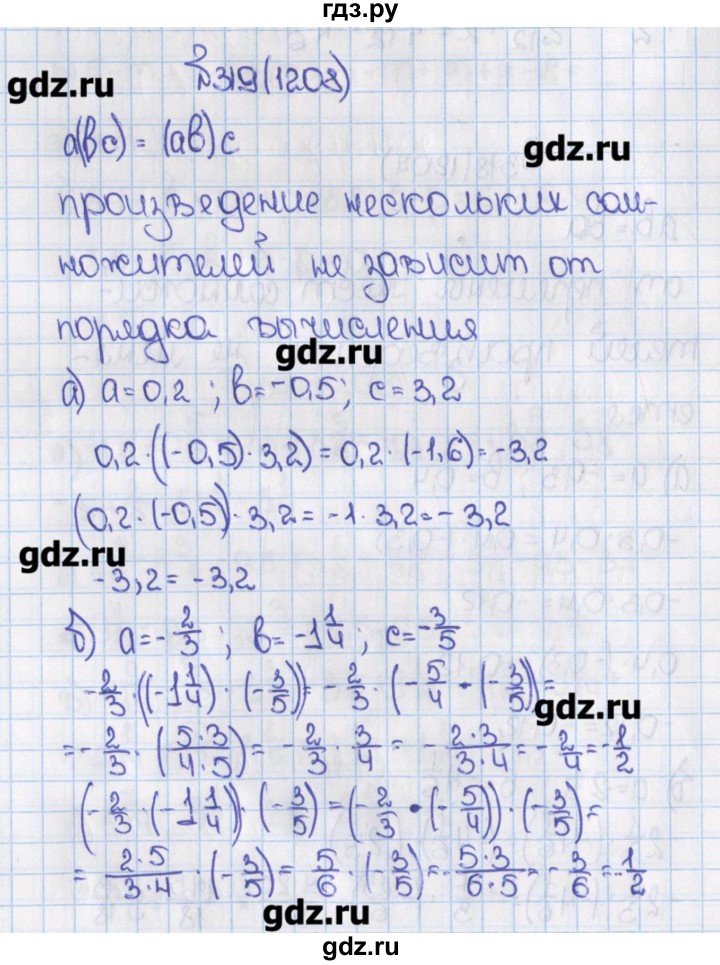 гдз.ру
№319(1208)
gdz.ru
a(bc) = (ab)c
gdz.ru
произведение нескольких сом-
ножителей не зависит от
порядка вычисления
gdz.ru
а) a=0,2 ; b=-0,5; c=3,2
0,2·((-0,5)·3,2)=0,2·(-1,6)=-3,2
(0,2·(-0,5))·3,2=-1·3,2=-3,2
gdz.ru
-3,2=-3,2
б) a=-2/3 ; b=-1 1/4 ; c=-3/5
-2/3·((-1 1/4)·(-3/5))=-2/3·(-5/4·(-3/5))=
gdz.ru
=-2/3·(5·3/4·5)=-2/3·3/4=-2·3/3·4=-2/4=-1/2
(-2/3·(-1 1/4))·(-3/5)=(-2/3·(-5/4))·(-3/5)=
=2·5/3·4·(-3/5)=5/6·(-3/5)=-5·3/6·5=-3/6=-1/2
gdz.ru
gdz.ru